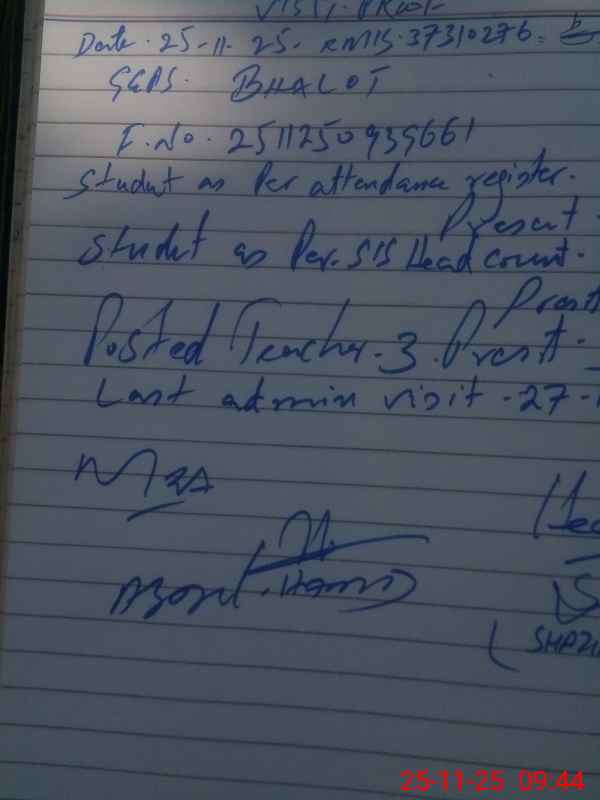 VISIT. PROOF
Date. 25-11-25. EMIS. 37310276.
GGPS. BHALOT
F. No. 2511250939661
Student as Per attendance register.
Present
Student as Per. SIS Head count.
Present
Posted Teacher. 3. Present
Last admin visit. 27-
MEA
Abdul. Hamid
25-11-25 09:44